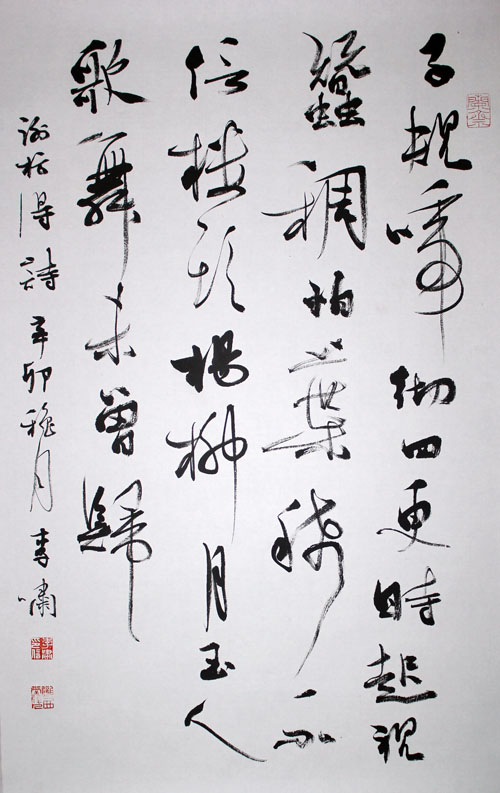 子規啼彻四更時起視
蠶稠怕葉稀不
信樓頭楊柳月玉人
歌舞未曾歸
謝枋得詩辛卯穐月李嘯